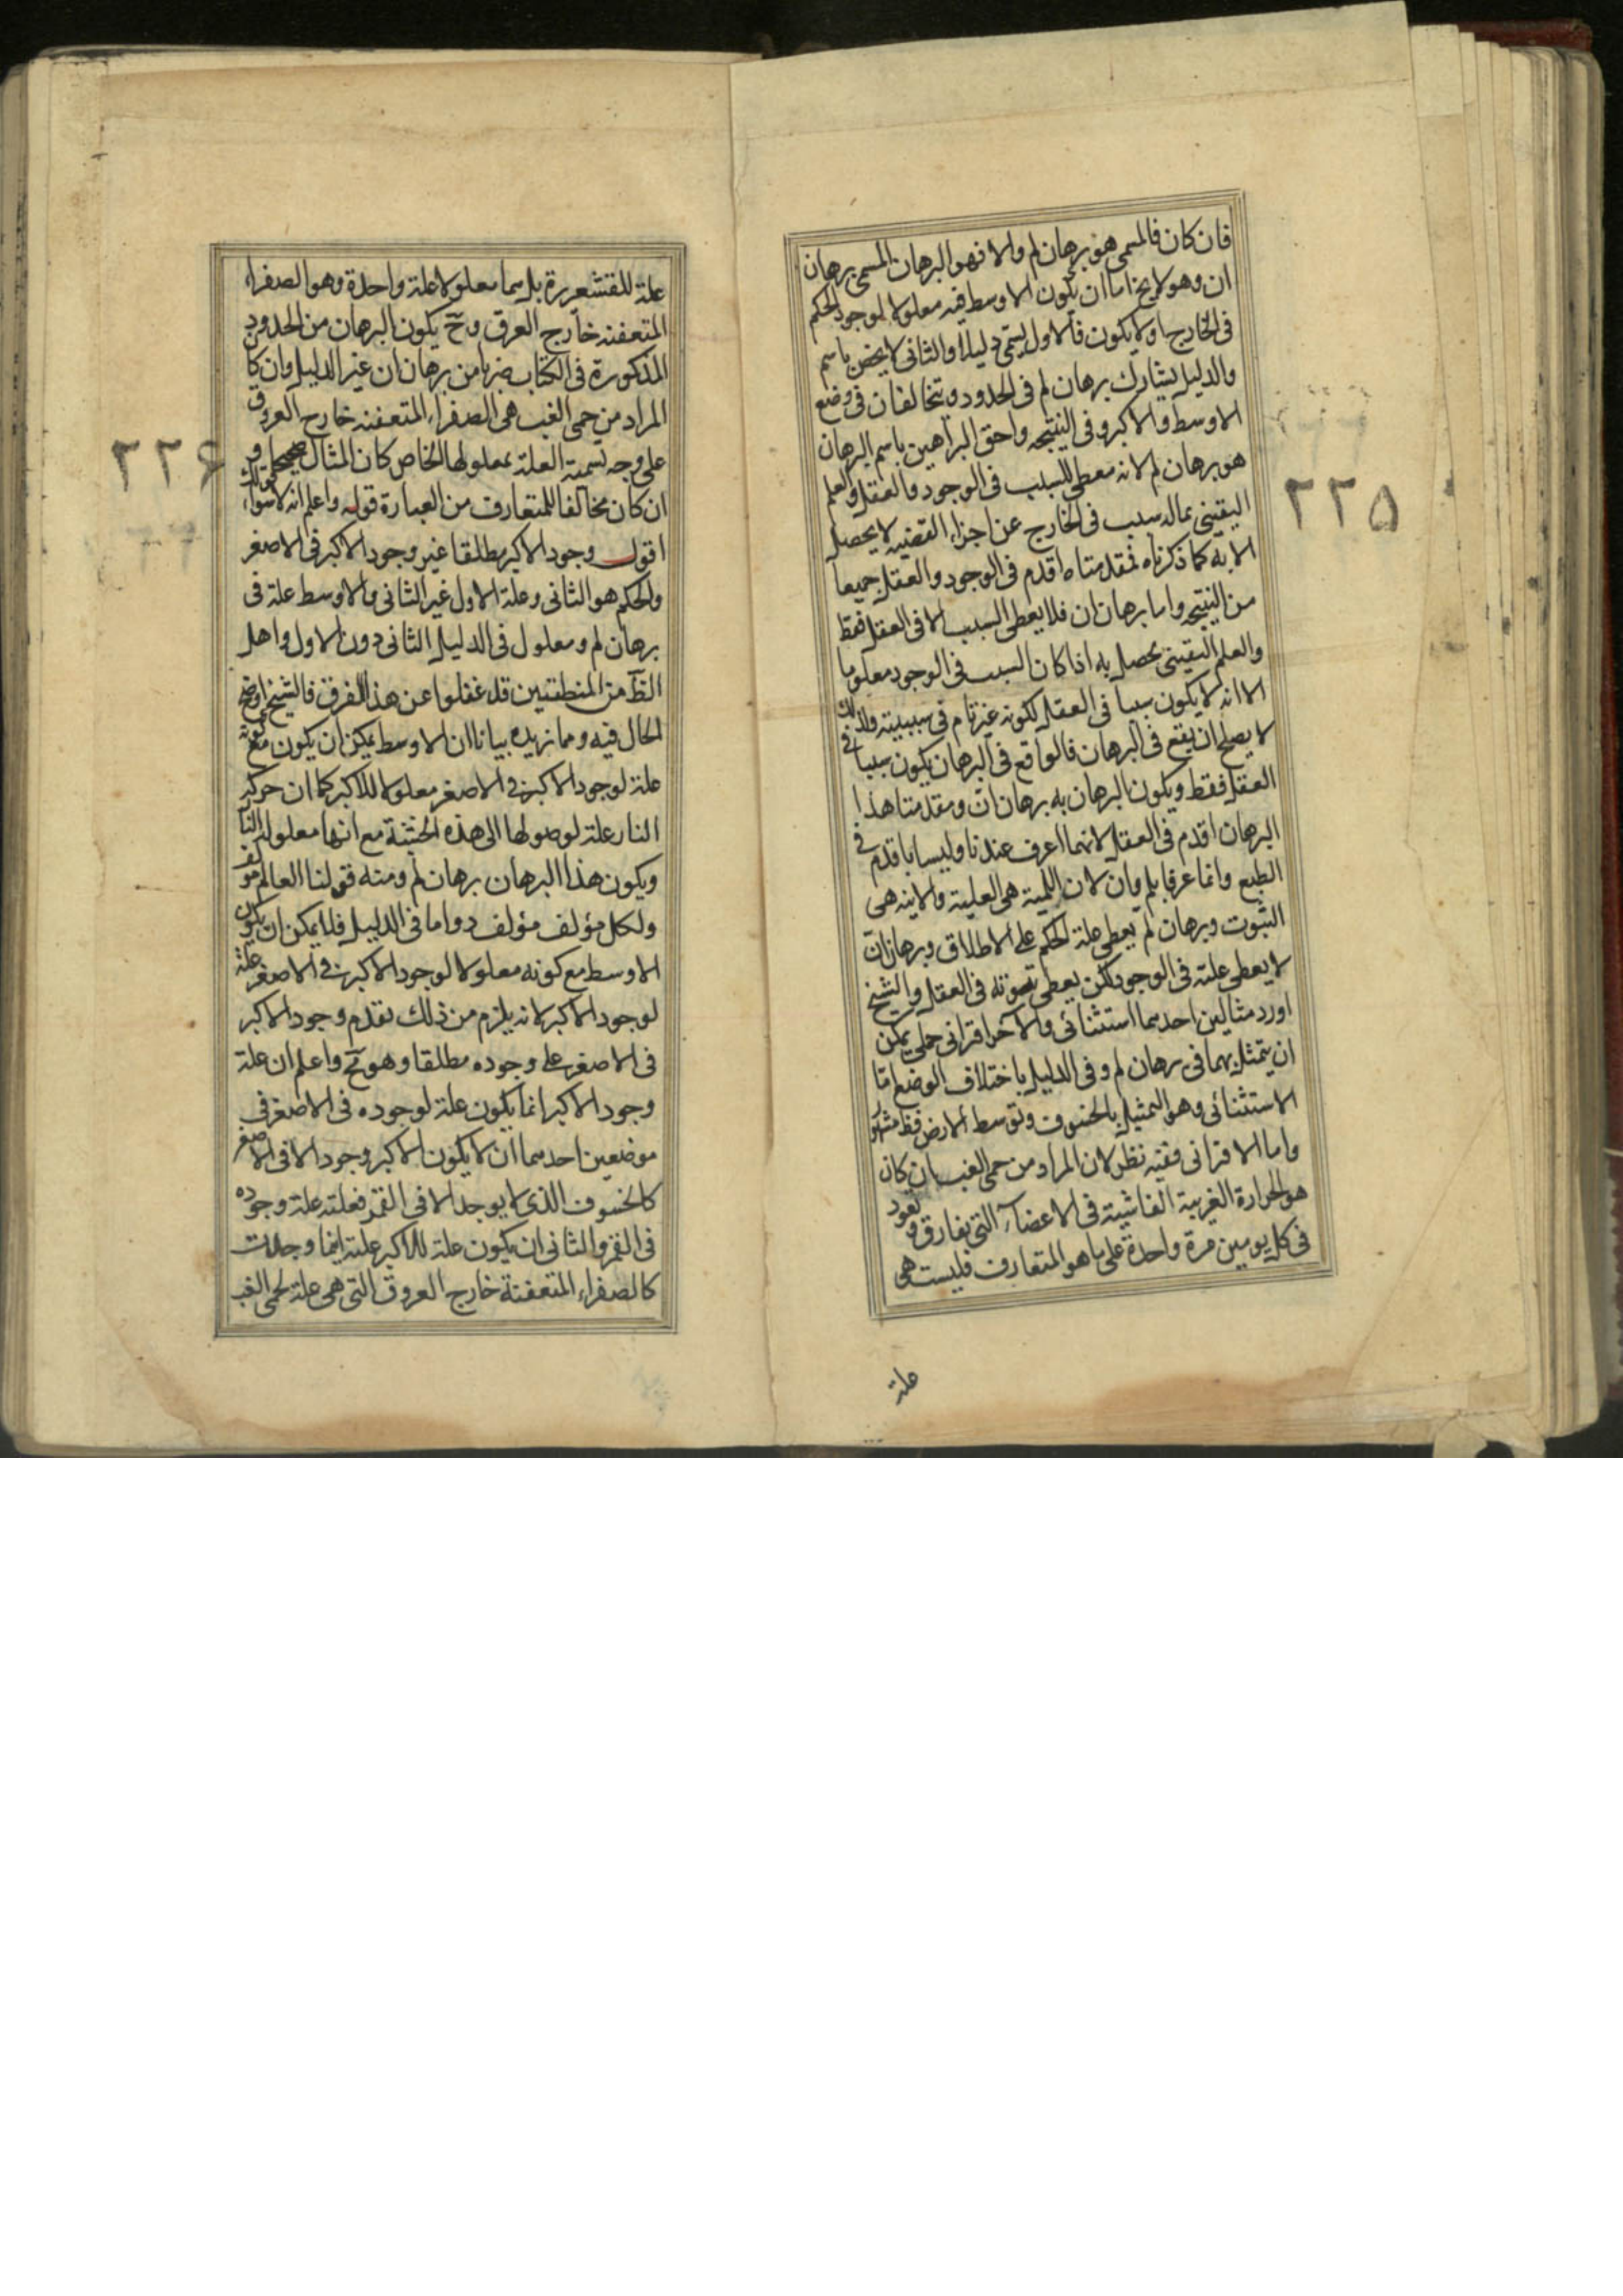 فان كان فالمسمى هو برهان لم والا فهو البرهان المسمى برهان
ان وهو لا يخ اما ان يكون الاوسط فيه معلولا لوجود الحكم
فى الخارج او لا يكون فالاول يسمى دليلا والثانى لا يخص باسم
والدليل يشارك برهان لم فى الحدود ويتخالفان فى وضع
الاوسط والاكبر وفى النتيجة واحق البراهين باسم البرهان
هو برهان لم لانه معطى للسبب فى الوجود والعقل والعلم
اليقينى بما له سبب فى الخارج عن اجزاء القضية لا يحصل
الا به كما ذكرناه فمقدمتاه اقدم فى الوجود والعقل جميعا
من النتيجة واما برهان ان فلا يعطى السبب الا فى العقل فقط
والعلم اليقينى يحصل به اذا كان السبب فى الوجود معلوما
الا انه لا يكون سببا فى العقل لكونه غير تام فى سببيته ولذلك
لا يصلح ان يقع فى البرهان فالواقع فى البرهان يكون سببا فى
العقل فقط ويكون البرهان به برهان ان ومقدمتا هذا
البرهان اقدم فى العقل لانهما اعرف عندنا وليسا باقدم فى
الطبع وانما عرفا بلم وان لان اللمية هى العلية والانية هى
الثبوت وبرهان لم يعطى علة الحكم على الاطلاق وبرهان ان
لا يعطى علته فى الوجود ولكن يعطى ثبوته فى العقل والشيخ
اورد مثالين احدهما استثنائى والآخر اقترانى حملى يمكن
ان يتمثل بهما فى برهان لم وفى الدليل باختلاف الوضع اما
الاستثنائى وهو التمثيل بالخسوف وتوسط الارض فظ مشهور
واما الاقترانى ففيه نظر لان المراد من حمى الغب ان كان
هو الحرارة الغريبة الفاشية فى الاعضاء التى تفارق وتعود
فى كل يومين مرة واحدة على ما هو المتعارف فليست هى
علة
٢٢٥
علة للقشعريرة بل هما معلولا علة واحدة وهو الصفراء
المتعفنه خارج العرق وح يكون البرهان من الحدود
المذكورة فى الكتاب ضربا من برهان ان غير الدليل وان كان
المراد من حمى الغب هى الصفراء المتعفنه خارج العروق
على وجه تسمية العلة بمعلولها الخاص كان المثال صحيحا و
ان كان مخالفا للمتعارف من العبارة قوله واعلم انه لا سواء
اقول وجود الاكبر مطلقا غير وجود الاكبر فى الاصغر
والحكم هو الثانى وعلة الاول غير الثانى والاوسط علة فى
برهان لم ومعلول فى الدليل الثانى دون الاول واهل
الظ من المنطقيين قد غفلوا عن هذا الفرق فالشيخ اوضح
الحال فيه ومما نزيده بيانا ان الاوسط يمكن ان يكون مع كونه
علة لوجود الاكبر فى الاصغر معلولا للاكبر كما ان حركة
النار علة لوصولها الى هذه الخشبة مع انها معلولة النار
ويكون هذا البرهان برهان لم ومنه قولنا العالم مؤلف
ولكل مؤلف مؤلف دواما فى الدليل فلا يمكن ان يكون
الاوسط مع كونه معلولا لوجود الاكبر فى الاصغر علة
لوجود الاكبر لانه يلزم من ذلك تقدم وجود الاكبر
فى الاصغر على وجوده مطلقا وهو مح واعلم ان علة
وجود الاكبر انما يكون علة لوجوده فى الاصغر فى
موضعين احدهما ان لا يكون للاكبر وجود الا فى الاصغر
كالخسوف الذى لا يوجد الا فى القمر فعلته علة وجوده
فى القمر والثانى ان يكون علة للاكبر علة اينما وجدت
كالصفراء المتعفنة خارج العروق التى هى علة لحمى الغب
٢٢۶